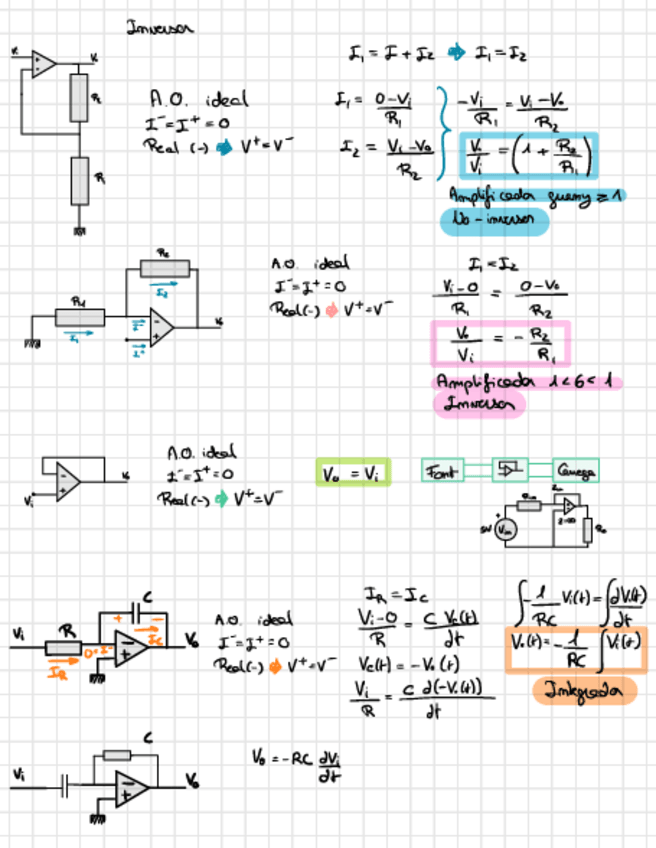 Inversor
Vi
Vo
R2
R1
A.O. ideal
I⁻=I⁺=0
Real (-) ➡ V⁺=V⁻
I₁ = I + I₂ ➡ I₁ = I₂
I₁ = (0-Vi)/R₁
I₂ = (Vi-Vo)/R₂
-Vi/R₁ = (Vi-Vo)/R₂
Vo/Vi = (1 + R₂/R₁)
Amplificador guany ≥ 1
No-inversor
R2
I2
R1
I1
I⁻
I⁺
Vo
A.O. ideal
I⁻=I⁺=0
Real(-) ➡ V⁺=V⁻
I₁=I₂
(Vi-0)/R₁ = (0-Vo)/R₂
Vo/Vi = - R₂/R₁
Amplificador 1<G<1
Inversor
Vi
Vo
A.O. ideal
I⁻=I⁺=0
Real(-) ➡ V⁺=V⁻
Vo = Vi
Font
Càrrega
C
Vi
R
Vo
IR
IC
A.O. ideal
I⁻=I⁺=0
Real(-) ➡ V⁺=V⁻
IR = IC
(Vi-0)/R = C Vc(t)/dt
Vc(t) = -Vo(t)
Vi/R = C d(-Vo(t))/dt
∫ -1/RC Vi(t) = ∫ dVo(t)/dt
Vo(t) = -1/RC ∫ Vi(t)
Integrador
C
Vi
Vo
Vo = -RC dVi/dt